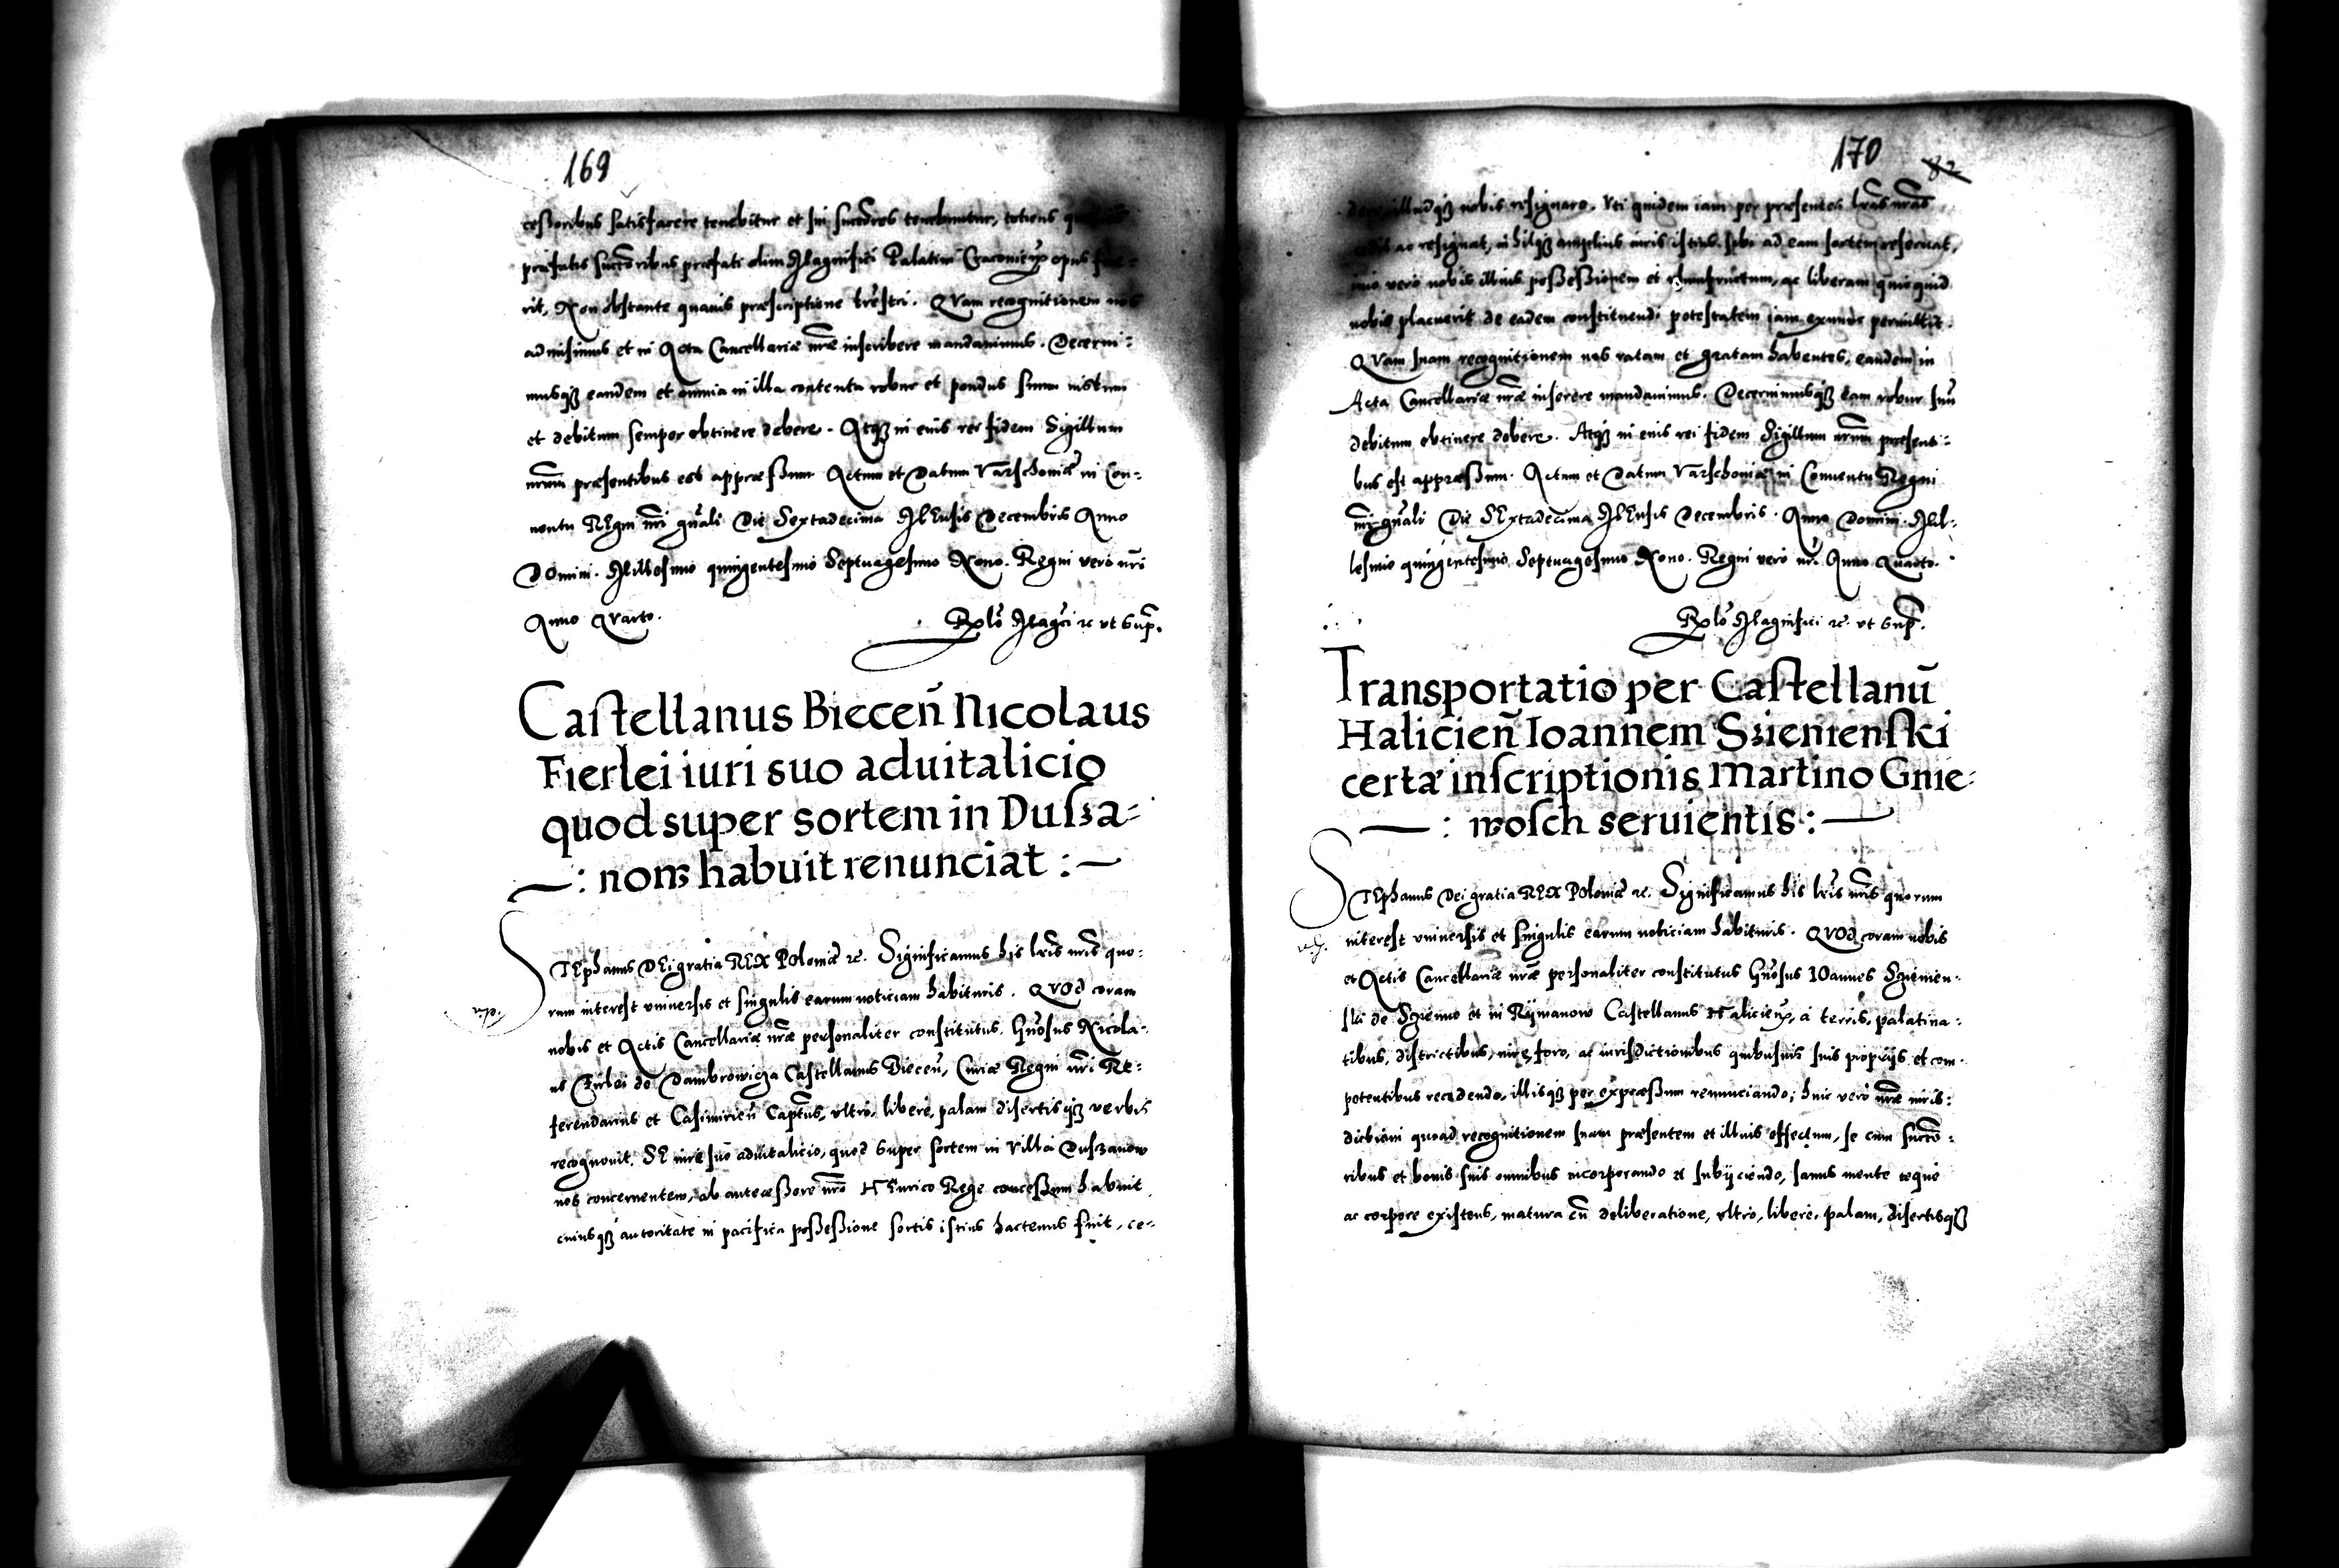 169
cessoribus satisfacere tenebitur et sui succr̄es tenebuntur, totiens
præfatis succr̄oribus præfati olim Magnifici Palatini Cracovieñ opus
rit, Non obstante quavis præscriptione tr̄estri. QVam recognitionem nos
admisimus et in Acta Cancellariæ nr̄æ inscribere mandavimus. Decerni-
musq3 eandem et omnia in illa contenta robur et pondus suum iustum
et debitum semper obtinere debere. Atq3 in eius rei fidem Sigillum
nr̄um præsentibus est appræssum. Actum et Datum Varschoviæ in Con-
ventu REgni nr̄i gn̄ali Die Sextadecima MEnsis Decembris Anno
DOmini. Millesimo quingentesimo Septuagesimo Nono. Regni vero nr̄i
Anno QVarto. Rel̄o Mag̃ci etc̄ ut supr̄.
Castellanus Bieceñ Nicolaus
Fierlei iuri suo advitalicio
quod super sortem in Dussa-
—: now habuit renunciat :—
STEphanus DEi gratia REX POloniæ etc̄. Significamus his lr̄is nr̄is quo-
rum interest universis et singulis earum noticiam habituris. QVOd coram
nobis et Actis Cancellariæ nr̄æ personaliter constitutus. Gn̄osus Nicola-
us Firlei de Dambrowicza Castellanus Bieceñ, Curiæ Regni nr̄i Re-
ferendarius et Casimirieñ Captūs, ultro, libere, palam disertisq3 verbis
recognovit. SE iure suo advitalicio, quod super sortem in Villa Duszanow
nos concernentem, ab antecessore nr̄o HEnrico Rege concessum habuit
cuiusq3 autoritate in pacifica possessione sortis istius hactenus fuit, ce-
170
82
illudq3 nobis resignare. Uti quidem iam per præsentes lr̄as nr̄as
ac resignat, nihilq3 amplius iuris istius sibi ad eam sortem reservat,
imo vero nobis illius possessionem et usumfructum, ac liberam quicquid
nobis placuerit de eadem constituendi potestatem iam exnunc permittit.
QVam suam recognitionem nos ratam et gratam habentes, eandem in
Acta Cancellariæ nr̄æ inserere mandavimus. Decernimusq3 eam robur suū
debitum obtinere debere. Atq3 in eius rei fidem Sigillum nr̄um præsenti-
bus est appræssum. Actum et Datum Varschoviæ in Conventu Regni
nr̄i gn̄ali Die SExtadecima MEnsis Decembris. Anno Domini. Mil-
lesimo quingentesimo Septuagesimo Nono. Regni vero nr̄i Anno Quarto.
Rel̄o Magnifici etc̄. ut supr̄.
Transportatio per Castellanū
Halicieñ Ioannem Szienienski
certæ inscriptionis Martino Gnie-
—: wosch servientis :—
STEphanus Dei gratia REX POloniæ etc̄. Significamus his lr̄is nr̄is quorum
interest universis et singulis earum noticiam habituris. QVOd coram nobis
et Actis Cancellariæ nr̄æ personaliter constitutus Gn̄osus IOannes Szienien-
ski de Szienno et in Rymanow Castellanus HAlicieñ, a terris, palatina-
tibus, districtibus, iure, foro, ac iurisdictionibus quibusvis suis proprijs et com-
petentibus recedendo, illisq3 per expræssum renunciando; huic vero nr̄æ iuris-
dictioni quoad recognitionem suam præsentem et illius effectum, se cum succr̄o-
ribus et bonis suis omnibus incorporando et subijciendo, sanus mente æque
ac corpore existens, matura cū deliberatione, ultro, libere, palam, disertisq3